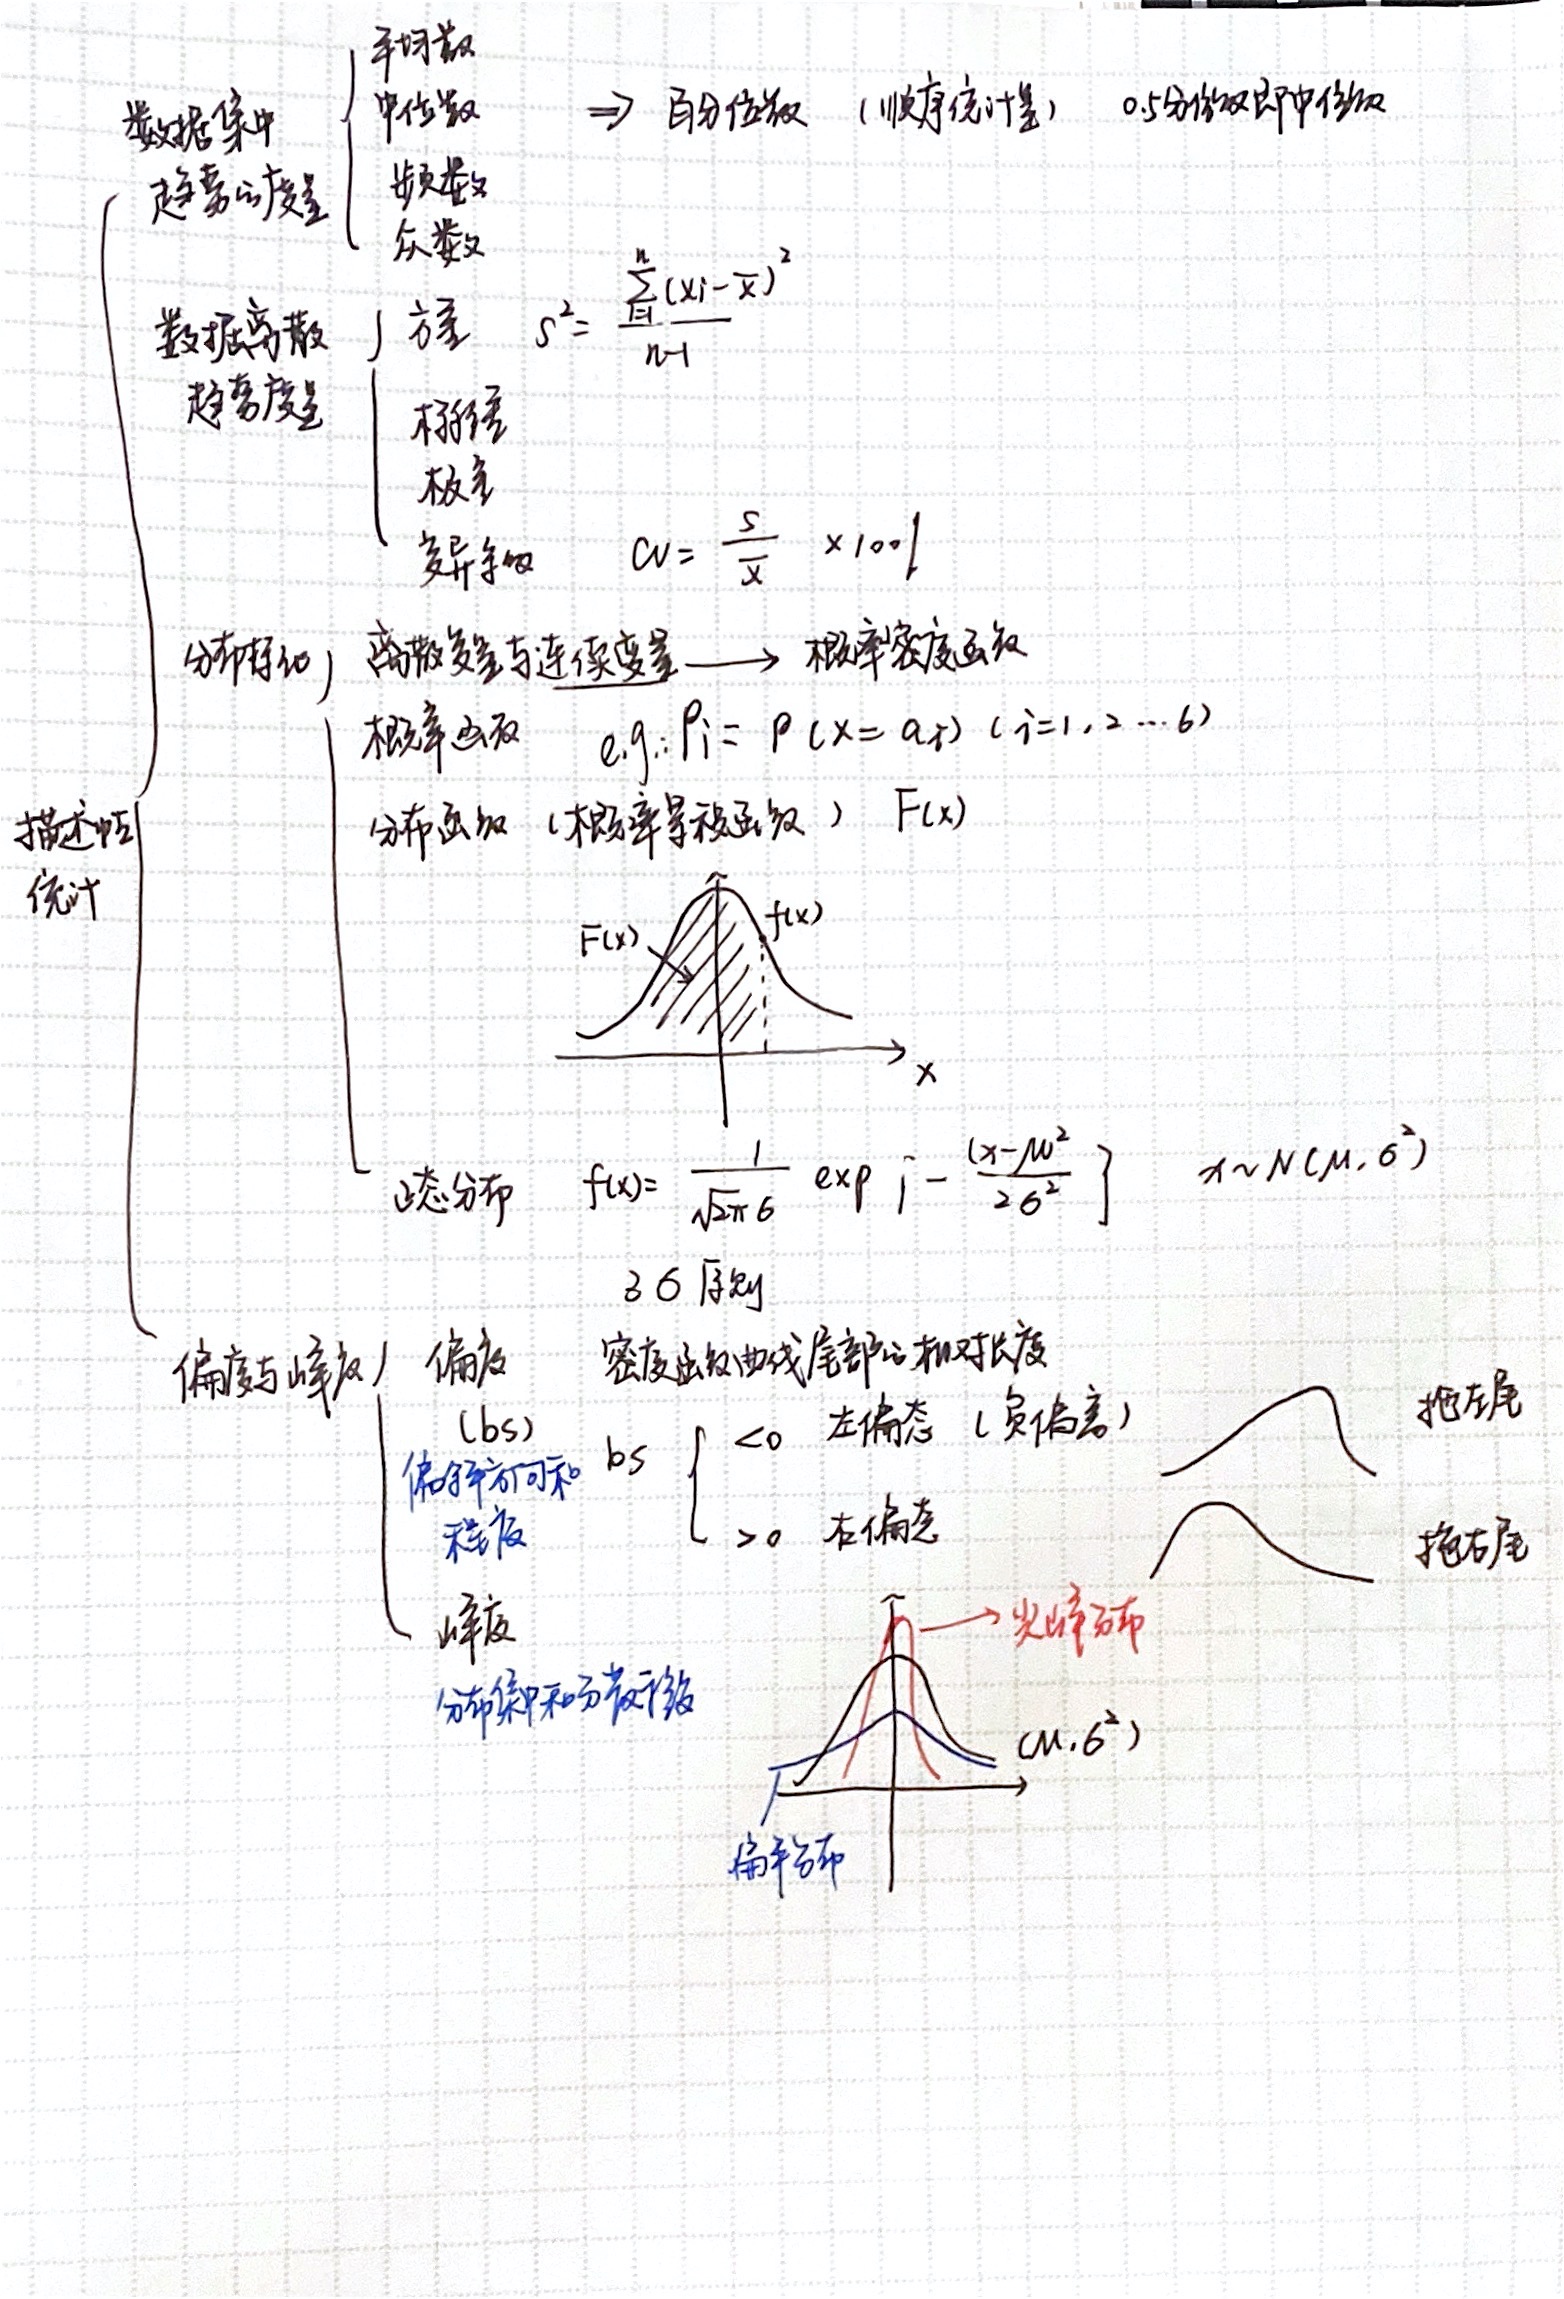 平均数
数据集中 中位数 ⇒ 百分位数 (顺序统计量) 0.5分位数即中位数
趋势的度量 频数
众数
数据离散 方差 s² = \frac{\sum_{i=1}^{n}(xi-\bar{x})²}{n-1}
趋势度量 标准差
极差
变异系数 CV = \frac{s}{\bar{x}} ×100%
分布 离散变量与连续变量 → 概率密度函数
概率函数 e.g.: Pi = P(X=ai) (i=1,2…6)
描述性 分布函数 (概率累积函数) F(x)
统计
F(x) f(x)
x
正态分布 f(x) = \frac{1}{\sqrt{2π}σ} exp{-\frac{(x-μ)²}{2σ²}} x~N(μ,σ²)
3σ原则
偏度与峰度 偏度 密度函数曲线尾部的相对长度
(bs) bs <0 左偏态 (负偏离) 拖左尾
偏斜方向和
程度 >0 右偏态 拖右尾
峰度 尖峰分布
分布集中和分散
(μ,σ²)
扁平分布